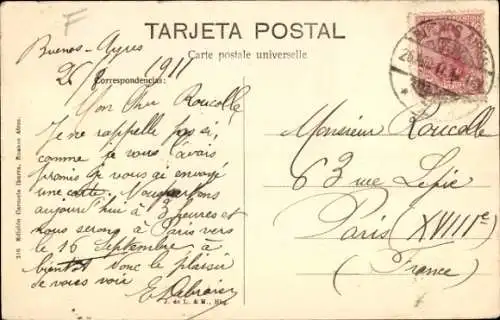 F
TARJETA POSTAL
Carte postale universelle
Buenos-Ayres
25/8 1911
Correspondencias:
Mon cher Roucolle
Je ne rappelle pas si,
comme je vous l'avais
promis je vous ai envoyé
une carte. Nous partons
aujourd'hui à 3 heures et
nous serons à Paris vers
le 16 Septembre à
bientot donc le plaisir
de vous voir
E. Debraisr
J. de L. & M., Hbg.
Monsieur Roucolle
63 rue Lepic
Paris (XVIIIe)
(France)
216 Edición Carmelo Ibarra, Buenos Aires.